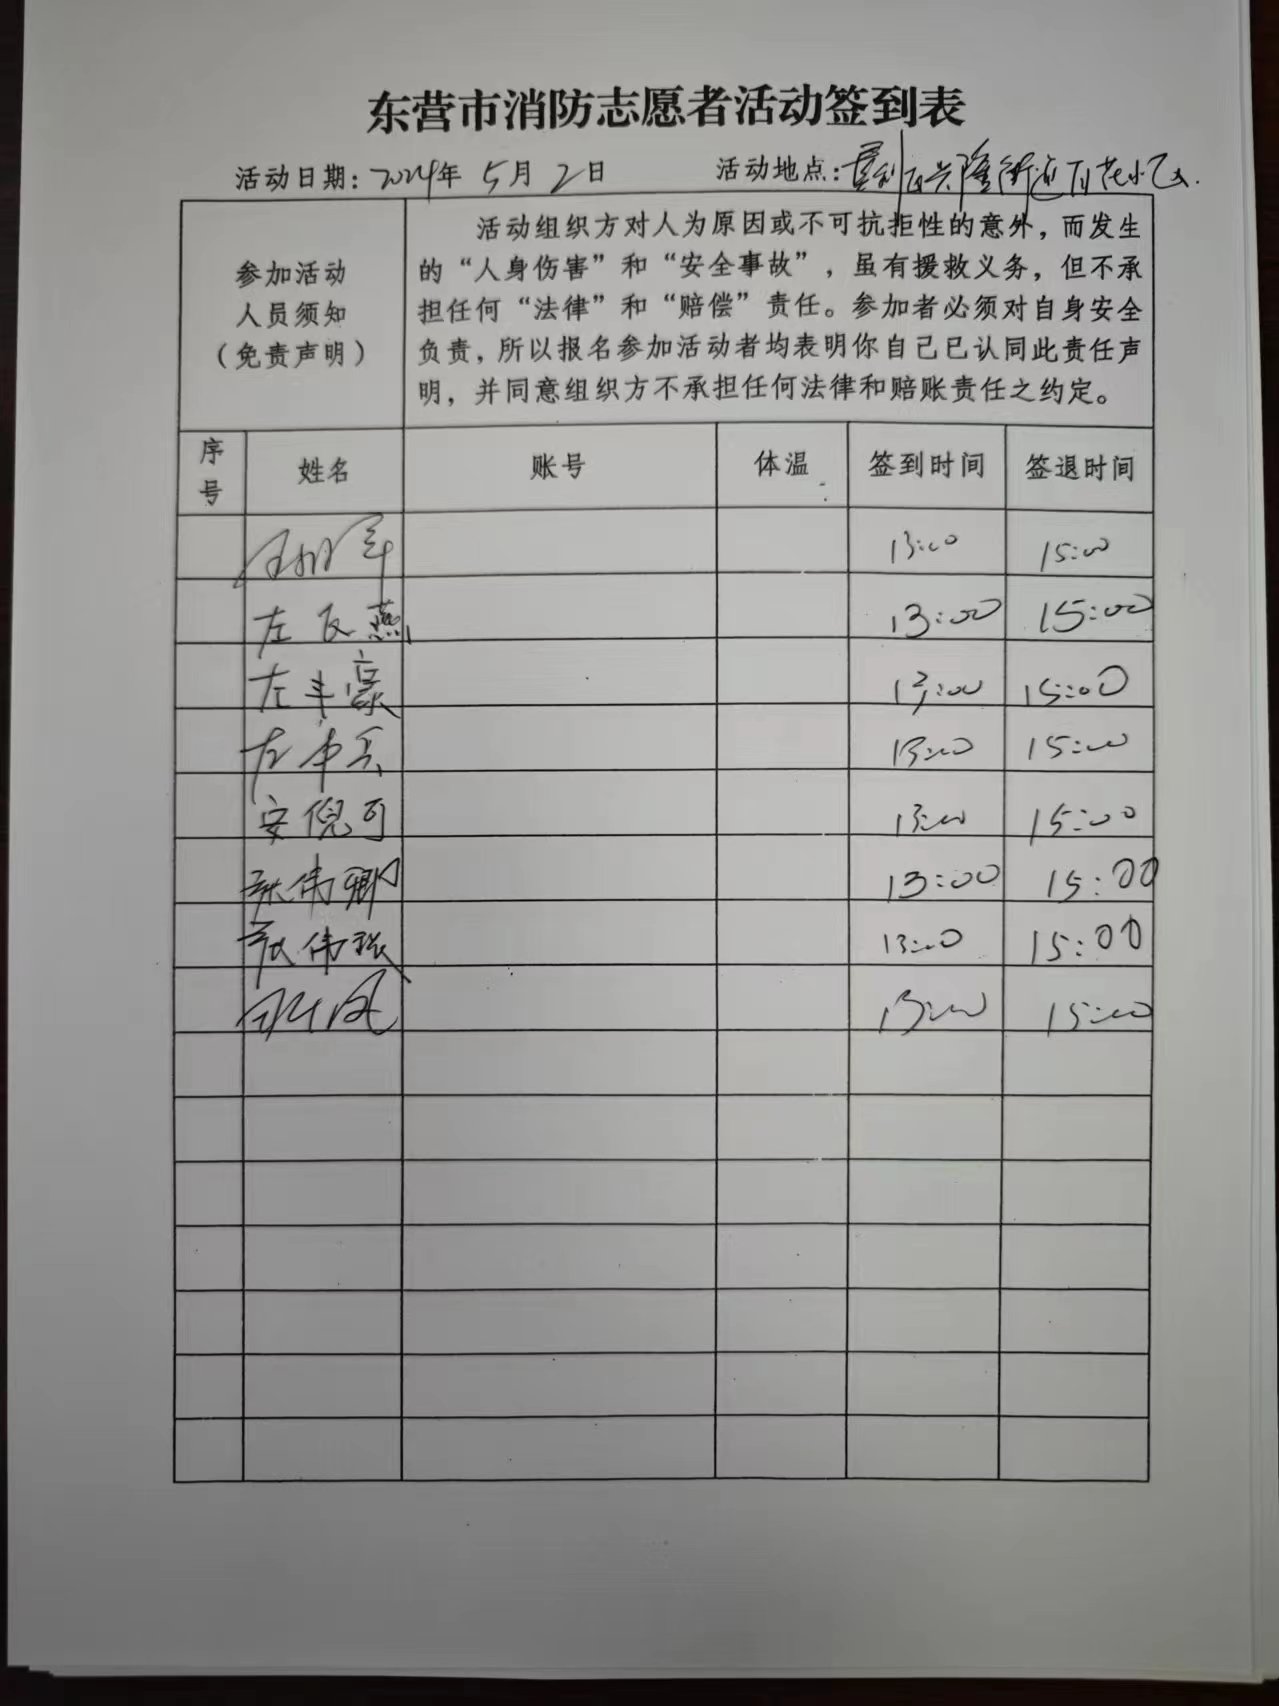 东营市消防志愿者活动签到表
活动日期:2024年 5月 2日 活动地点:垦利区兴隆街道百花小区.
参加活动
人员须知
(免责声明)
活动组织方对人为原因或不可抗拒性的意外,而发生
的“人身伤害”和“安全事故”,虽有援救义务,但不承
担任何“法律”和“赔偿”责任。参加者必须对自身安全
负责,所以报名参加活动者均表明你自己已认同此责任声
明,并同意组织方不承担任何法律和赔账责任之约定。
序号 姓名 账号 体温 签到时间 签退时间
13:00 15:00
左 燕 13:00 15:00
左丰豪 13:00 15:00
左 13:00 15:00
安倪可 13:00 15:00
张伟卿 13:00 15:00
张伟 13:00 15:00
13:00 15:00